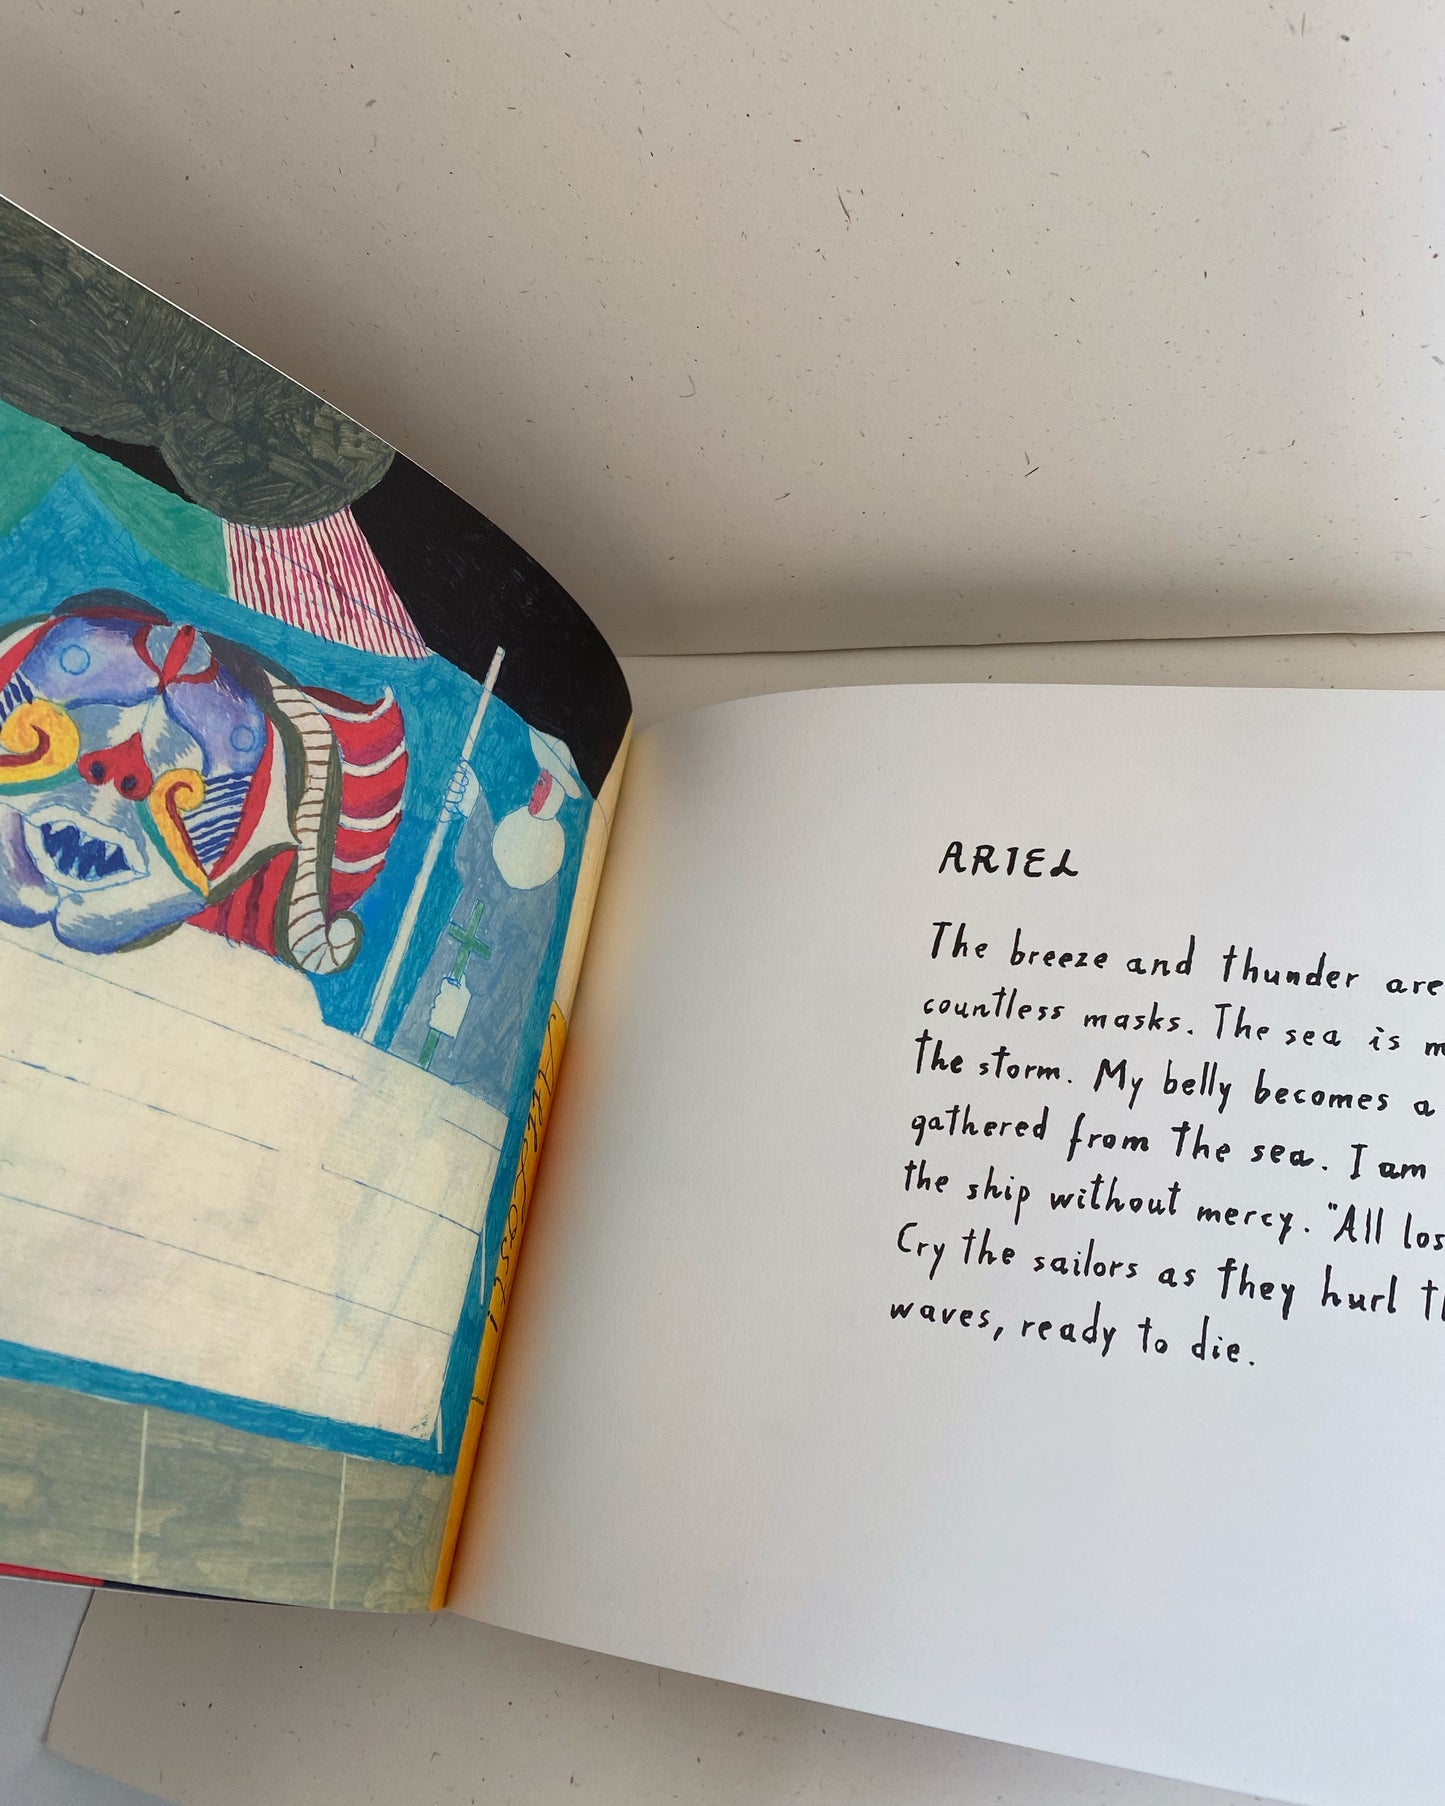 ARIEL
The breeze and thunder are
countless masks. The sea is
the storm. My belly becomes a
gathered from the sea. I am
the ship without mercy. "All
Cry the sailors as they hurl
waves, ready to die.